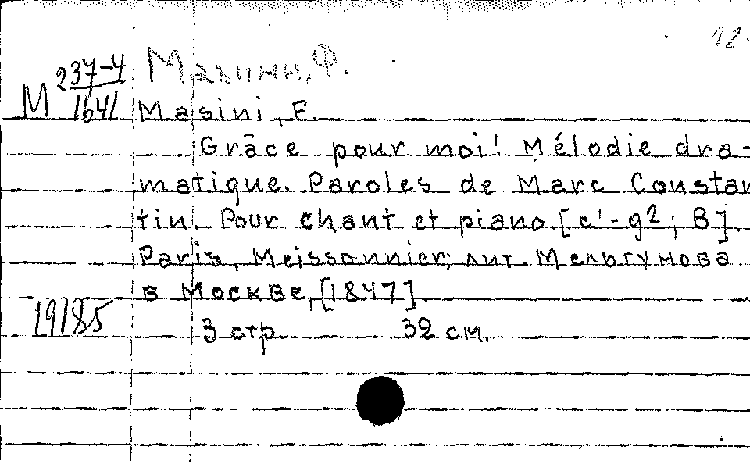 12
М 237-4/1641
Мазини, Ф.
Masini, F.
Grâce pour moi! Mélodie dra-
matique. Paroles de Marc Constan
tin. Pour chant et piano [c'-g2; B].
Paris, Meissonnier; лит. Мельгунова
в Москве, [1847].
19185
3 стр. 32 см.